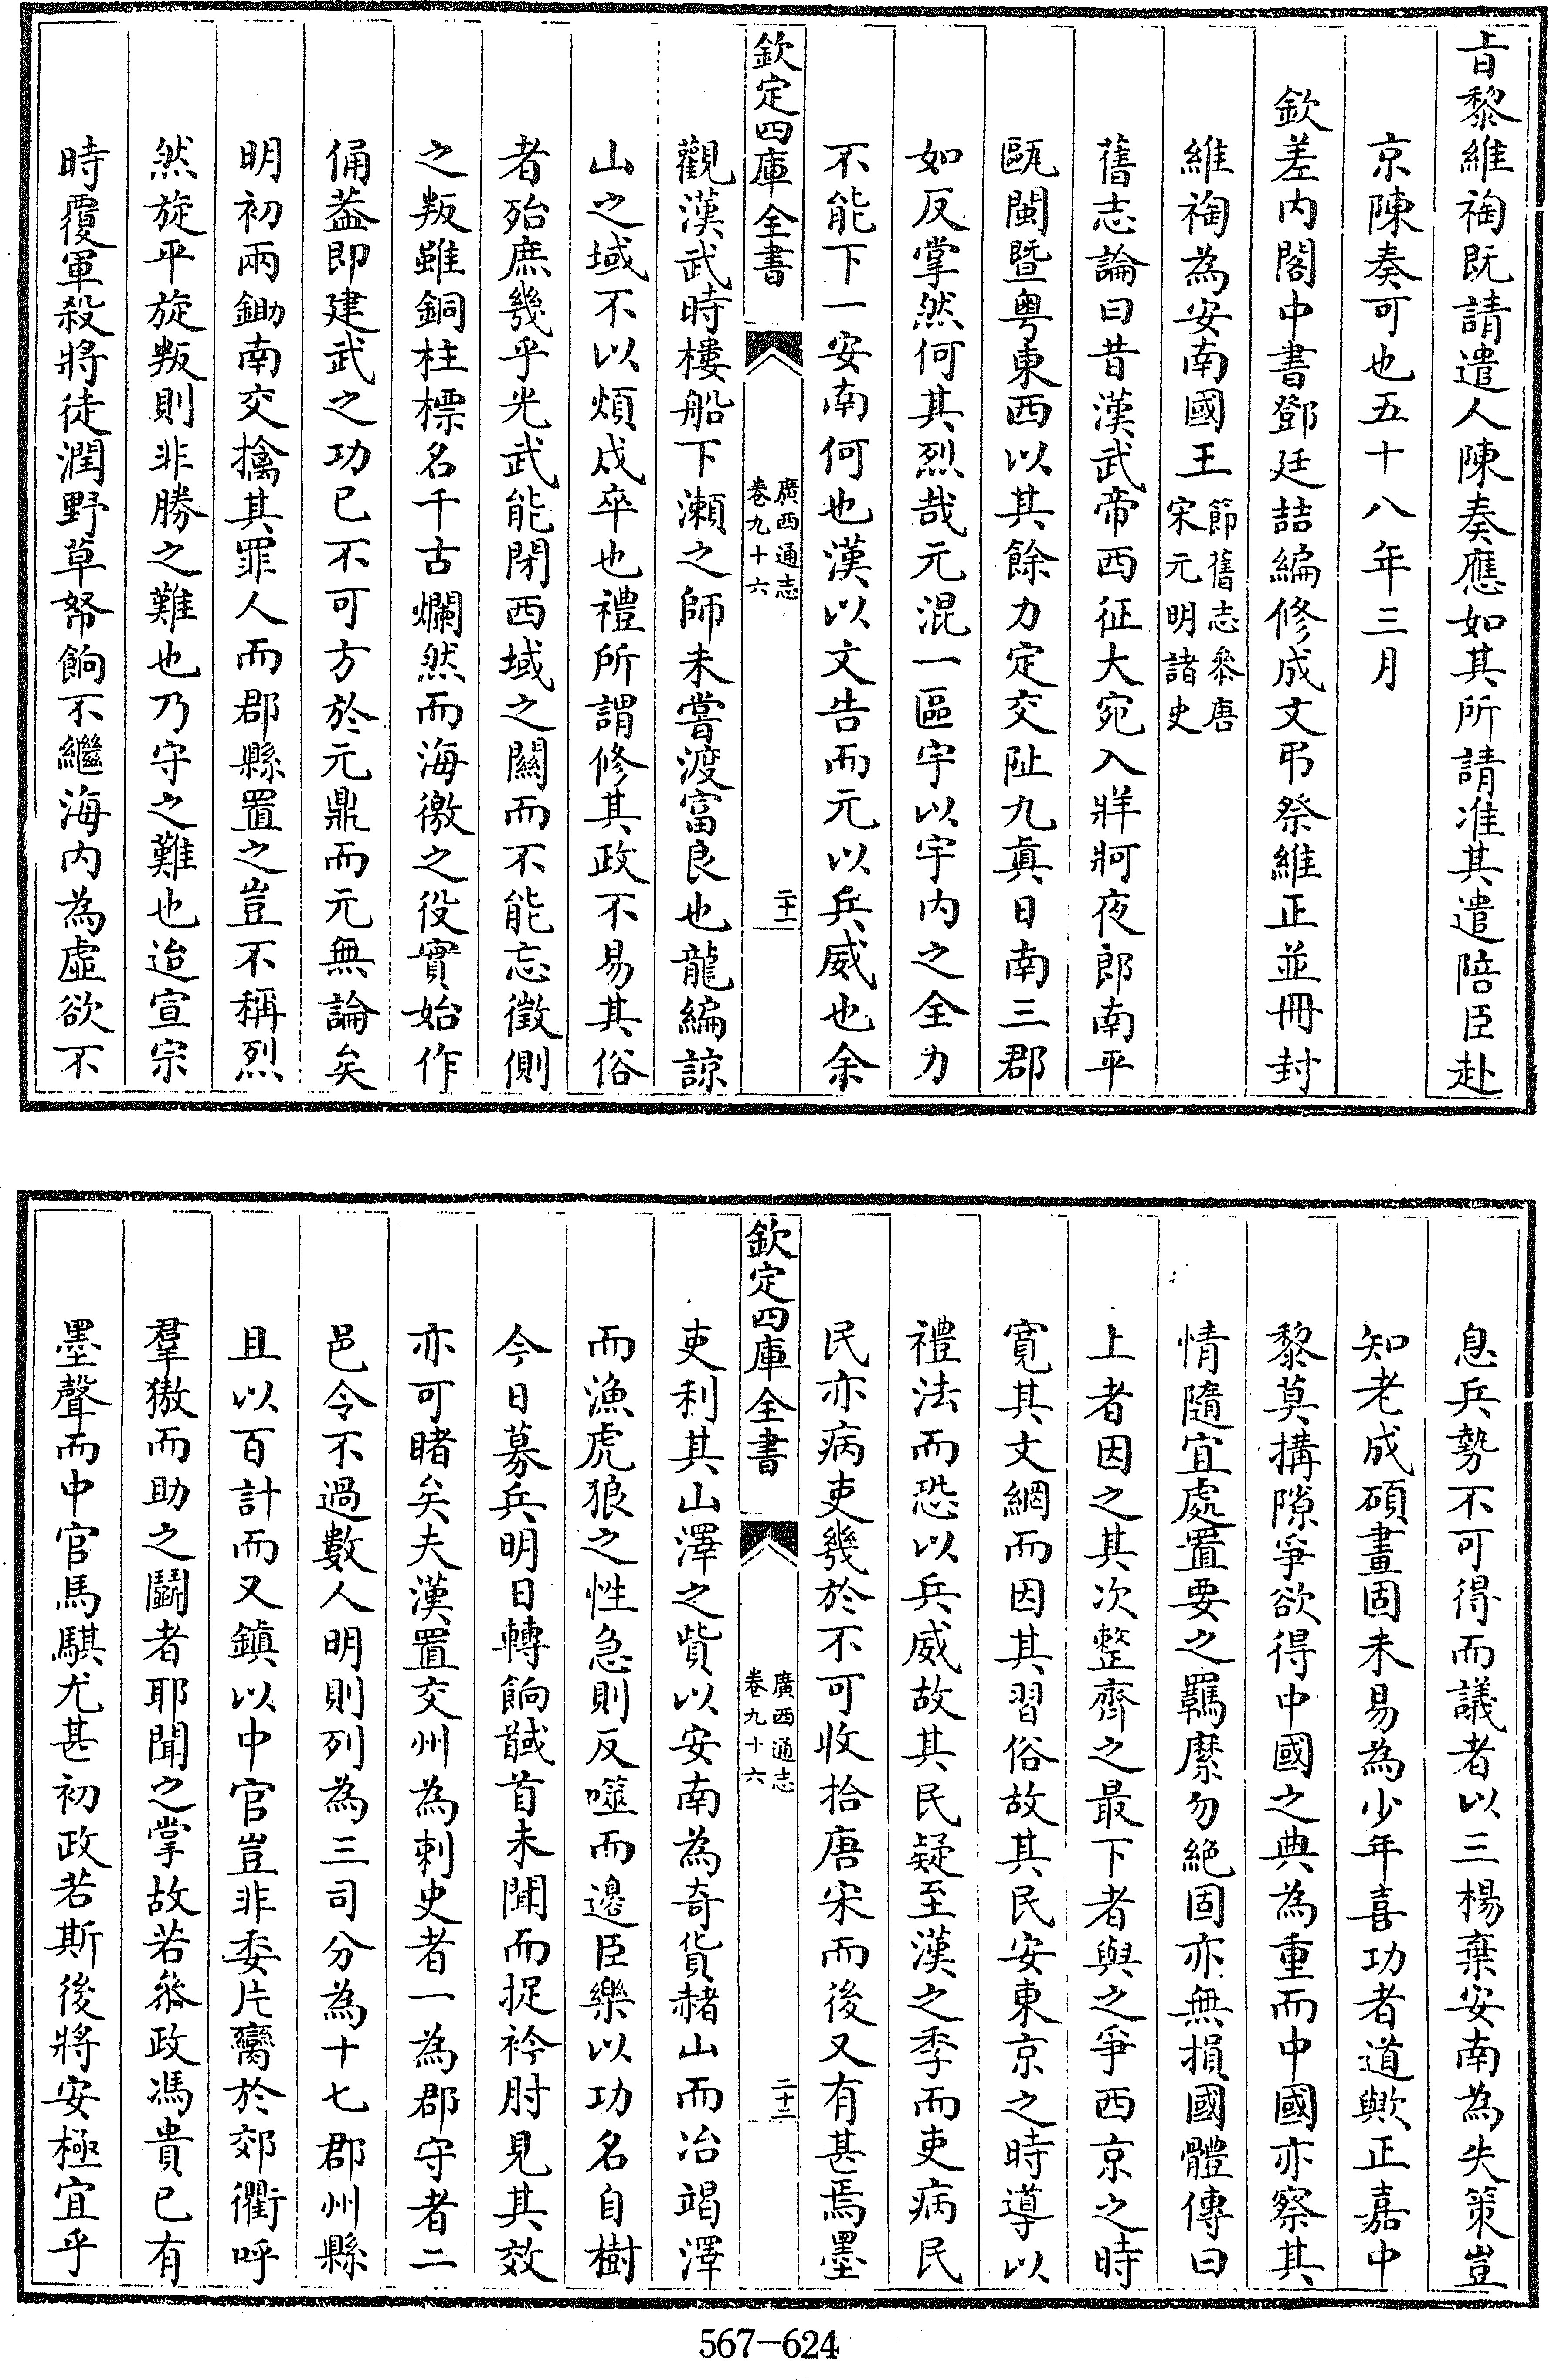 旨黎維祹既請遣人陳奏應如其所請准其遣陪臣赴
京陳奏可也五十八年三月
欽差内閣中書鄧廷喆編修成文弔祭維正並冊封
維祹為安南國王節舊志叅唐
宋元明諸史
舊志論曰昔漢武帝西征大宛入牂牁夜郎南平
甌閩暨粤東西以其餘力定交阯九眞日南三郡
如反掌然何其烈哉元混一區宇以宇内之全力
不能下一安南何也漢以文告而元以兵威也余
欽定四庫全書
廣西通志
卷九十六
二十一
觀漢武時樓船下瀨之師未嘗渡富良也龍編諒
山之域不以煩戍卒也禮所謂修其政不易其俗
者殆庶幾乎光武能閉西域之關而不能忘徵側
之叛雖銅柱標名千古爛然而海徼之役實始作
俑葢即建武之功已不可方於元鼎而元無論矣
明初兩鋤南交擒其罪人而郡縣置之豈不稱烈
然旋平旋叛則非勝之難也乃守之難也迨宣宗
時覆軍殺將徒潤野草帑餉不繼海内為虛欲不
息兵勢不可得而議者以三楊棄安南為失策豈
知老成碩畫固未易為少年喜功者道歟正嘉中
黎莫搆隙爭欲得中國之典為重而中國亦察其
情隨宜處置要之羈縻勿絶固亦無損國體傳曰
上者因之其次整齊之最下者與之爭西京之時
寛其文網而因其習俗故其民安東京之時導以
禮法而恐以兵威故其民疑至漢之季而吏病民
民亦病吏幾於不可收拾唐宋而後又有甚焉墨
欽定四庫全書
廣西通志
卷九十六
二十二
吏利其山澤之貲以安南為奇貨赭山而冶竭澤
而漁虎狼之性急則反噬而邊臣樂以功名自樹
今日募兵明日轉餉馘首未聞而捉衿肘見其效
亦可睹矣夫漢置交州為刺史者一為郡守者二
邑令不過數人明則列為三司分為十七郡州縣
且以百計而又鎮以中官豈非委片臠於郊衢呼
羣獒而助之鬭者耶聞之掌故若叅政馮貴已有
墨聲而中官馬騏尤甚初政若斯後將安極宜乎
567-624